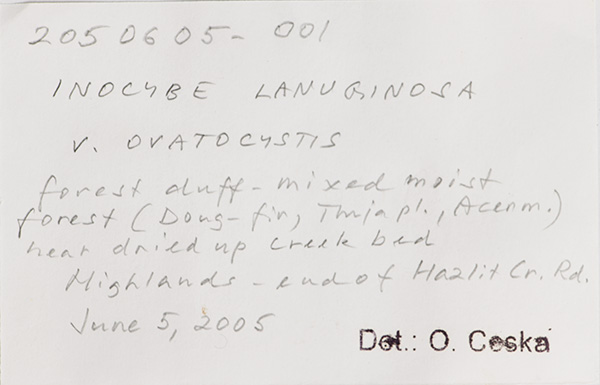 2050605-001
INOCYBE LANUGINOSA
V. OVATOCYSTIS
forest duff - mixed moist
forest (Doug-fir, Thuja pl., Acer m.)
near dried up creek bed
Highlands - end of Hazlit Cr. Rd.
June 5, 2005
Det.: O. Ceska